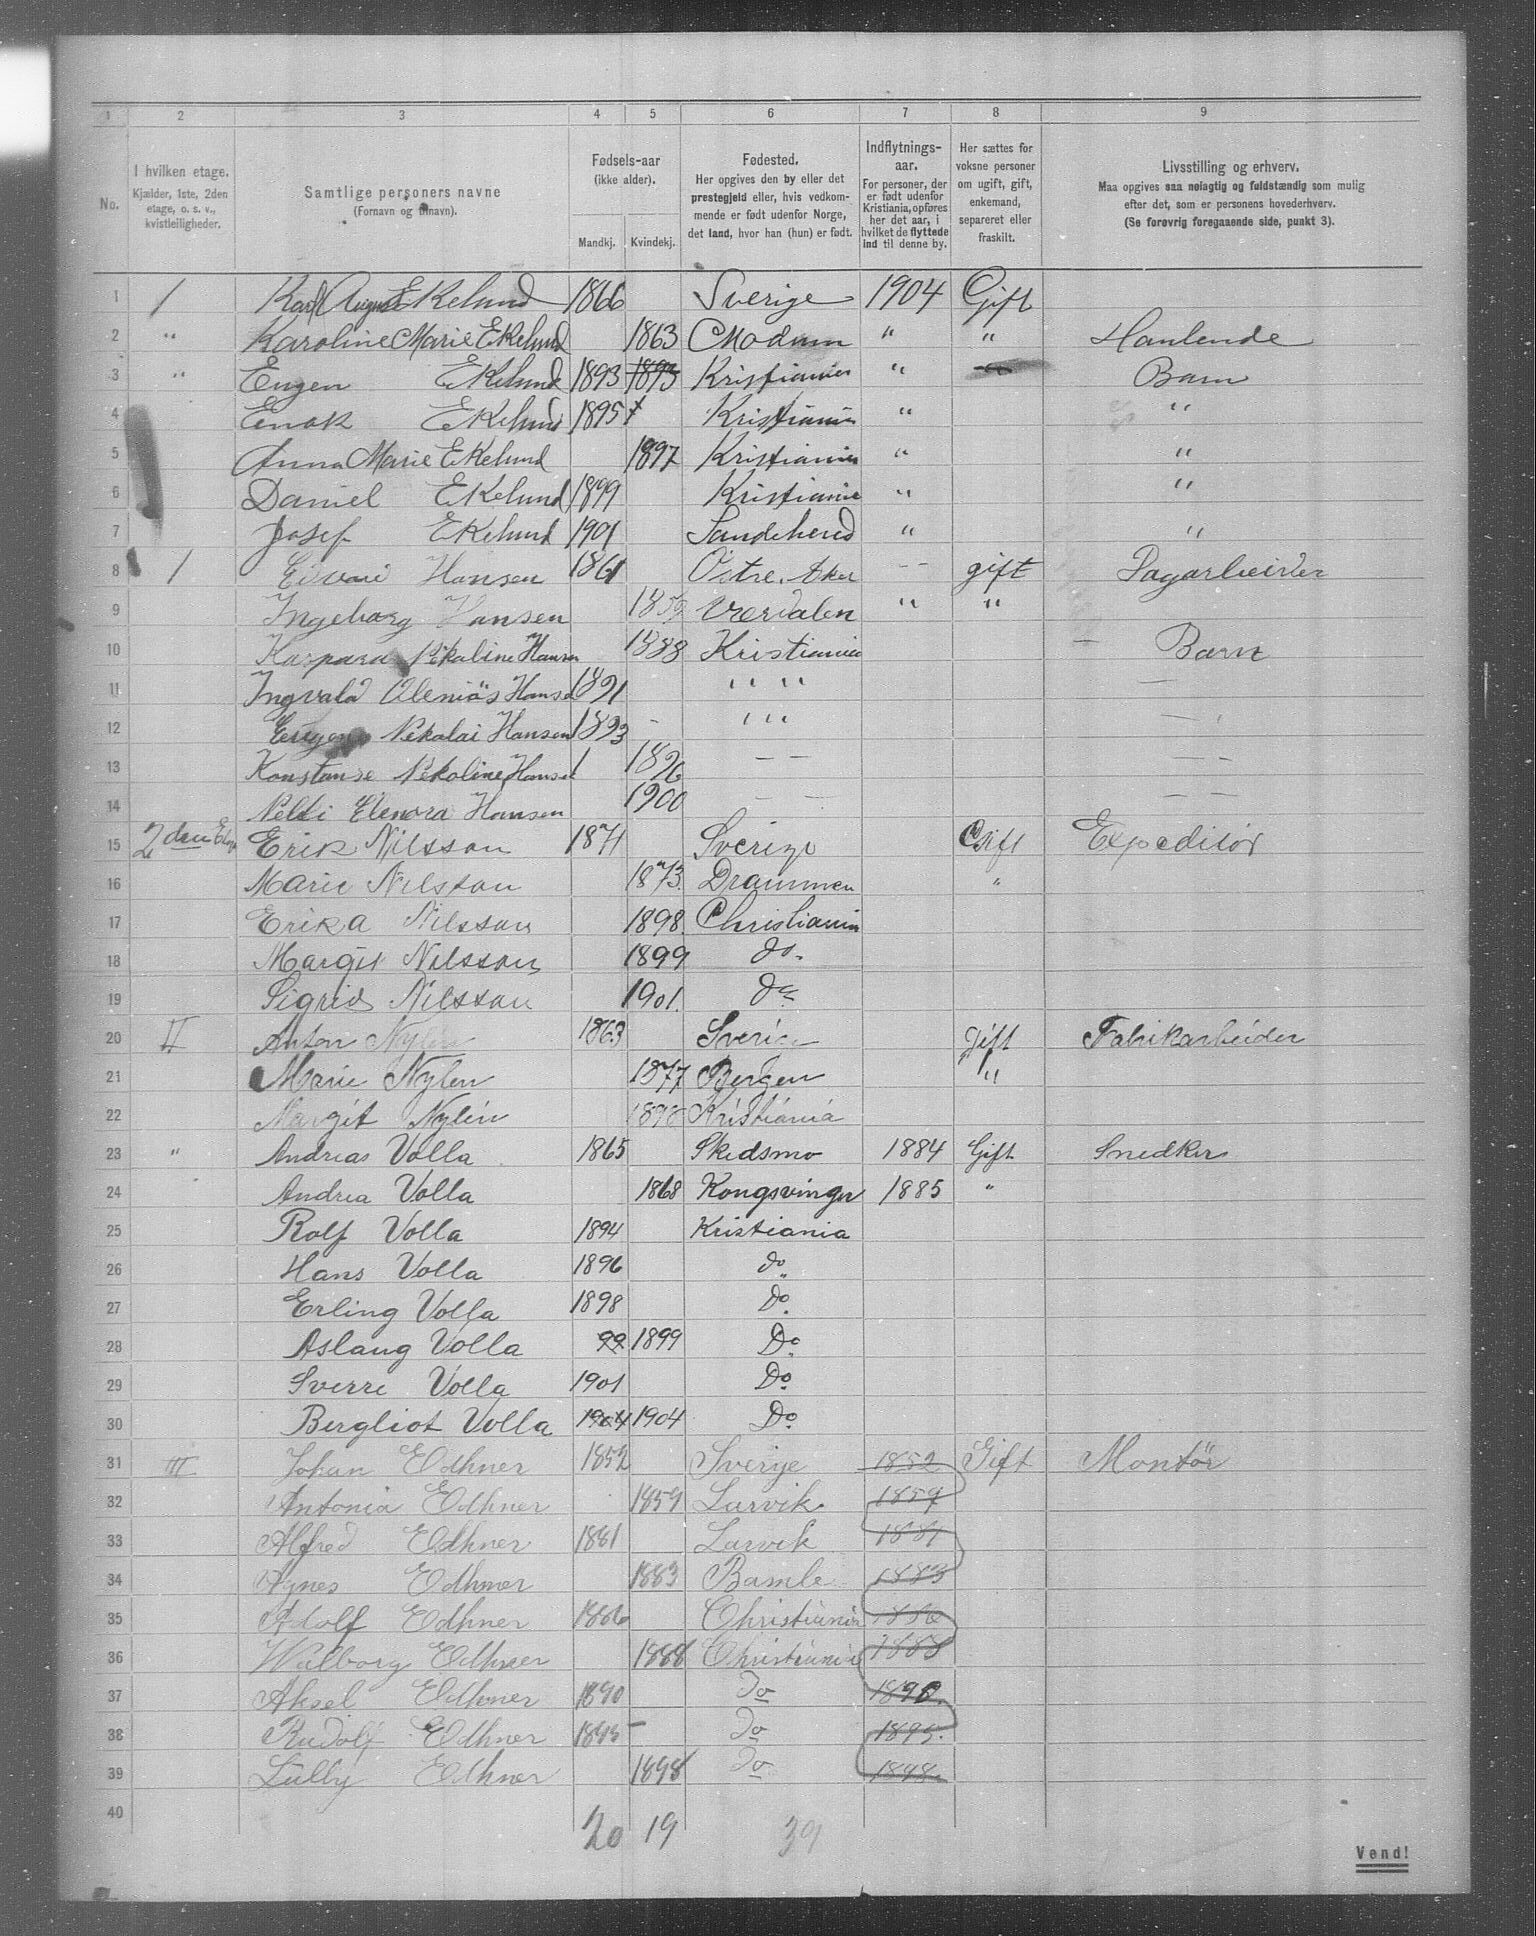 1 2 3 4 5 6 7 8 9
No.
I hvilken etage.
Kjælder, 1ste, 2den
etage, o. s. v.,
kvistleiligheder.
Samtlige personers navne
(Fornavn og tilnavn).
Fødsels-aar
(ikke alder).
Mandkj. Kvindekj.
Fødested.
Her opgives den by eller det
prestegjeld eller, hvis vedkom-
mende er født udenfor Norge,
det land, hvor han (hun) er født.
Indflytnings-
aar.
For personer, der
er født udenfor
Kristiania, opføres
her det aar, i
hvilket de flyttede
ind til denne by.
Her sættes for
voksne personer
om ugift, gift,
enkemand,
separeret eller
fraskilt.
Livsstilling og erhverv.
Maa opgives saa nøiagtig og fuldstændig som mulig
efter det, som er personens hovederhverv.
(Se forøvrig foregaaende side, punkt 3).
1 1 Karl August Ekelund 1866 Sverige 1904 Gift
2 " Karoline Marie Ekelund 1863 Modum " " Hanlende
3 " Eugen Ekelund 1893 1893 Kristiania " Barn
4 Enok Ekelund 1895 Kristiania " "
5 Anna Marie Ekelund 1897 Kristiania " "
6 Daniel Ekelund 1899 Kristiania " "
7 Josef Ekelund 1901 Sandeherred " "
8 1 Edvard Hansen 1861 Østre Aker -- gift Dagarbeider
9 Ingeborg Hansen 1859 Værdalen " "
10 Kaspara Nikoline Hansen 1888 Kristiania — Barn
11 Ingvald Hansen 1891 " " —
12 Eugen Nikolai Hansen 1893 - " " —
13 Konstanse Nikoline Hansen 1896 — — — —
14 Nelli Elenora Hansen 1900 — — — —
15 2den Etage Erik Nilsson 1871 Sverige Gift Expeditør
16 Marie Nilsson 1873. Drammen "
17 Erika Nilsson 1898. Christiania
18 Margit Nilsson 1899 do.
19 Sigrid Nilsson 1901. do
20 II Anton Nylen 1863 Sverige gift Fabrikarbeider
21 Marie Nylen 1877 Bergen "
22 Margit Nylén 1898 Kristiania
23 " Andreas Volla 1865 Skedsmo 1884 Gift Snedker
24 Andrea Volla 1868 Kongsvinger 1885 "
25 Rolf Volla 1894 Kristiania
26 Hans Volla 1896 do
27 Erling Volla 1898 Do
28 Aslaug Volla 99 1899 Do
29 Sverre Volla 1901 Do
30 Bergliot Volla 1904 1904 Do
31 III Johan Edhner 1852 Sverige 1852 Gift Montør
32 Antonia Edhner 1859 Larvik 1859
33 Alfred Edhner 1881 Larvik 1881
34 Agnes Edhner 1883 Bamle 1883
35 Adolf Edhner 1886 Christiania 1886
36 Walborg Edhner 1888 Christiania 1888
37 Aksel Edhner 1890 Do 1890.
38 Rudolf Edhner 1895 Do 1895.
39 Lülly Edhner 1898 Do 1898.
40
20 19 39
Vend!